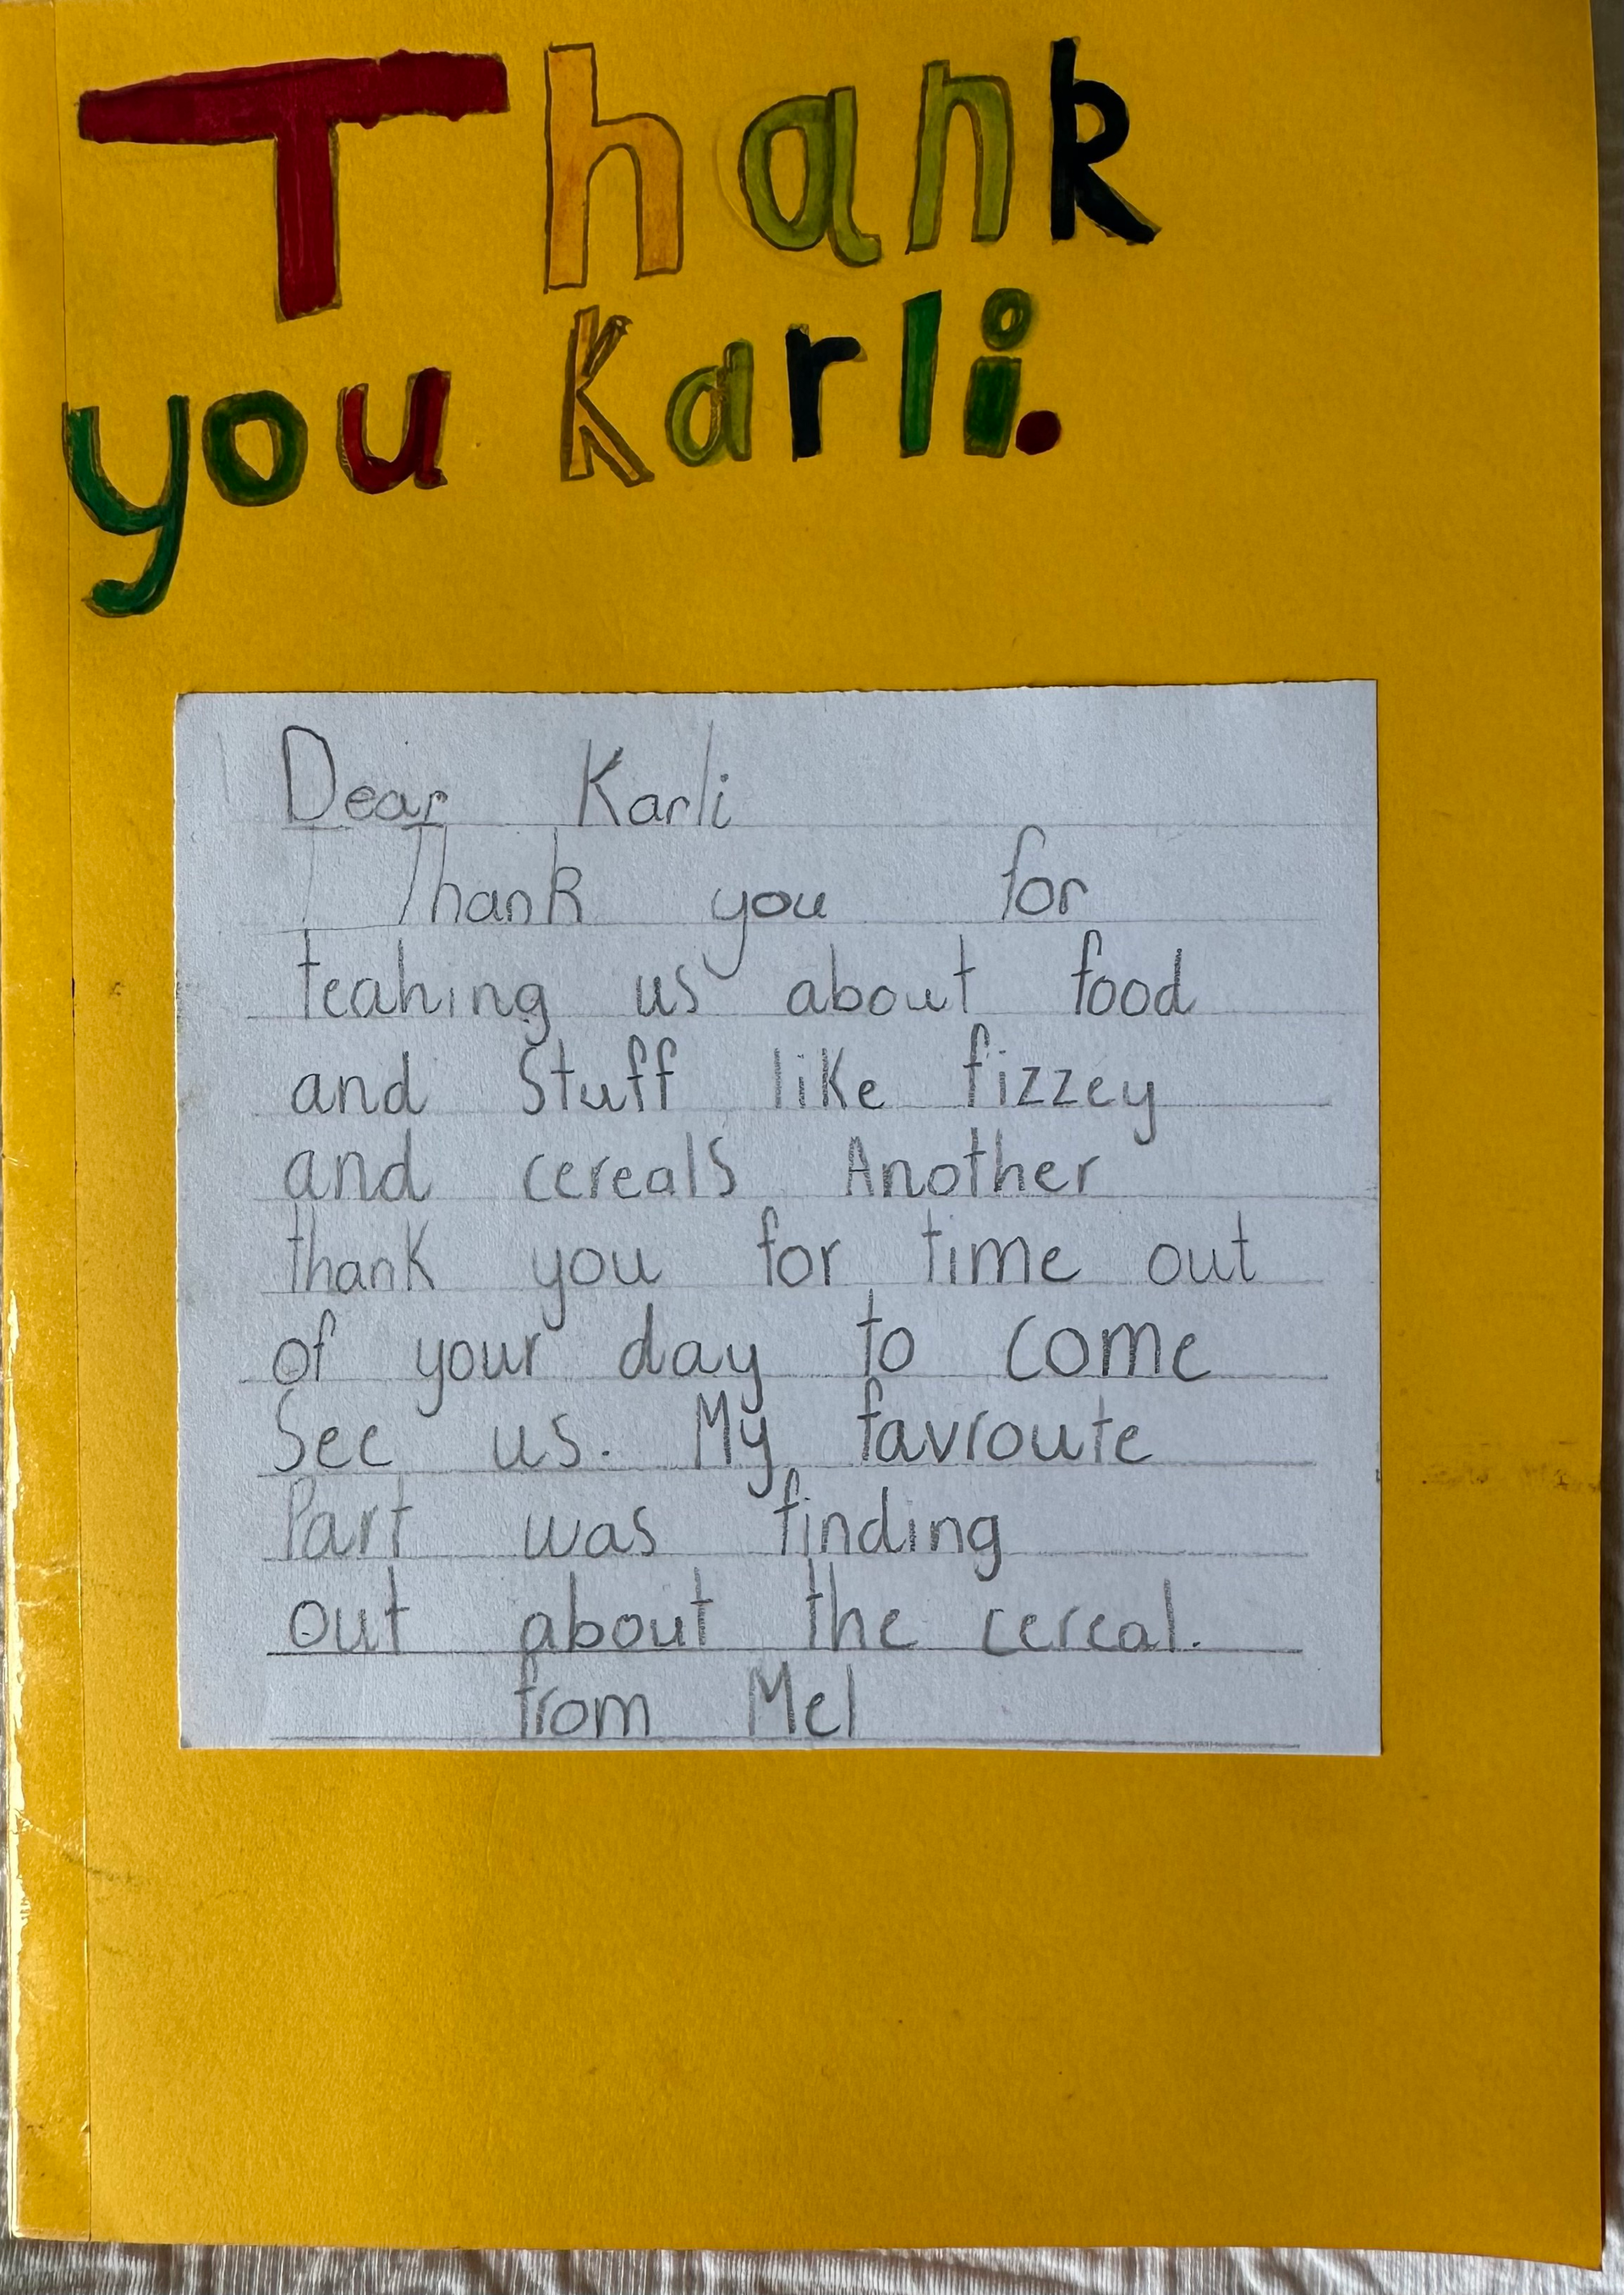 Thank
you Karli.
Dear Karli
Thank you for
teahing us about food
and Stuff like fizzey
and cereals Another
thank you for time out
of your day to come
See us. My favroute
Part was finding
out about the cereal.
from Mel